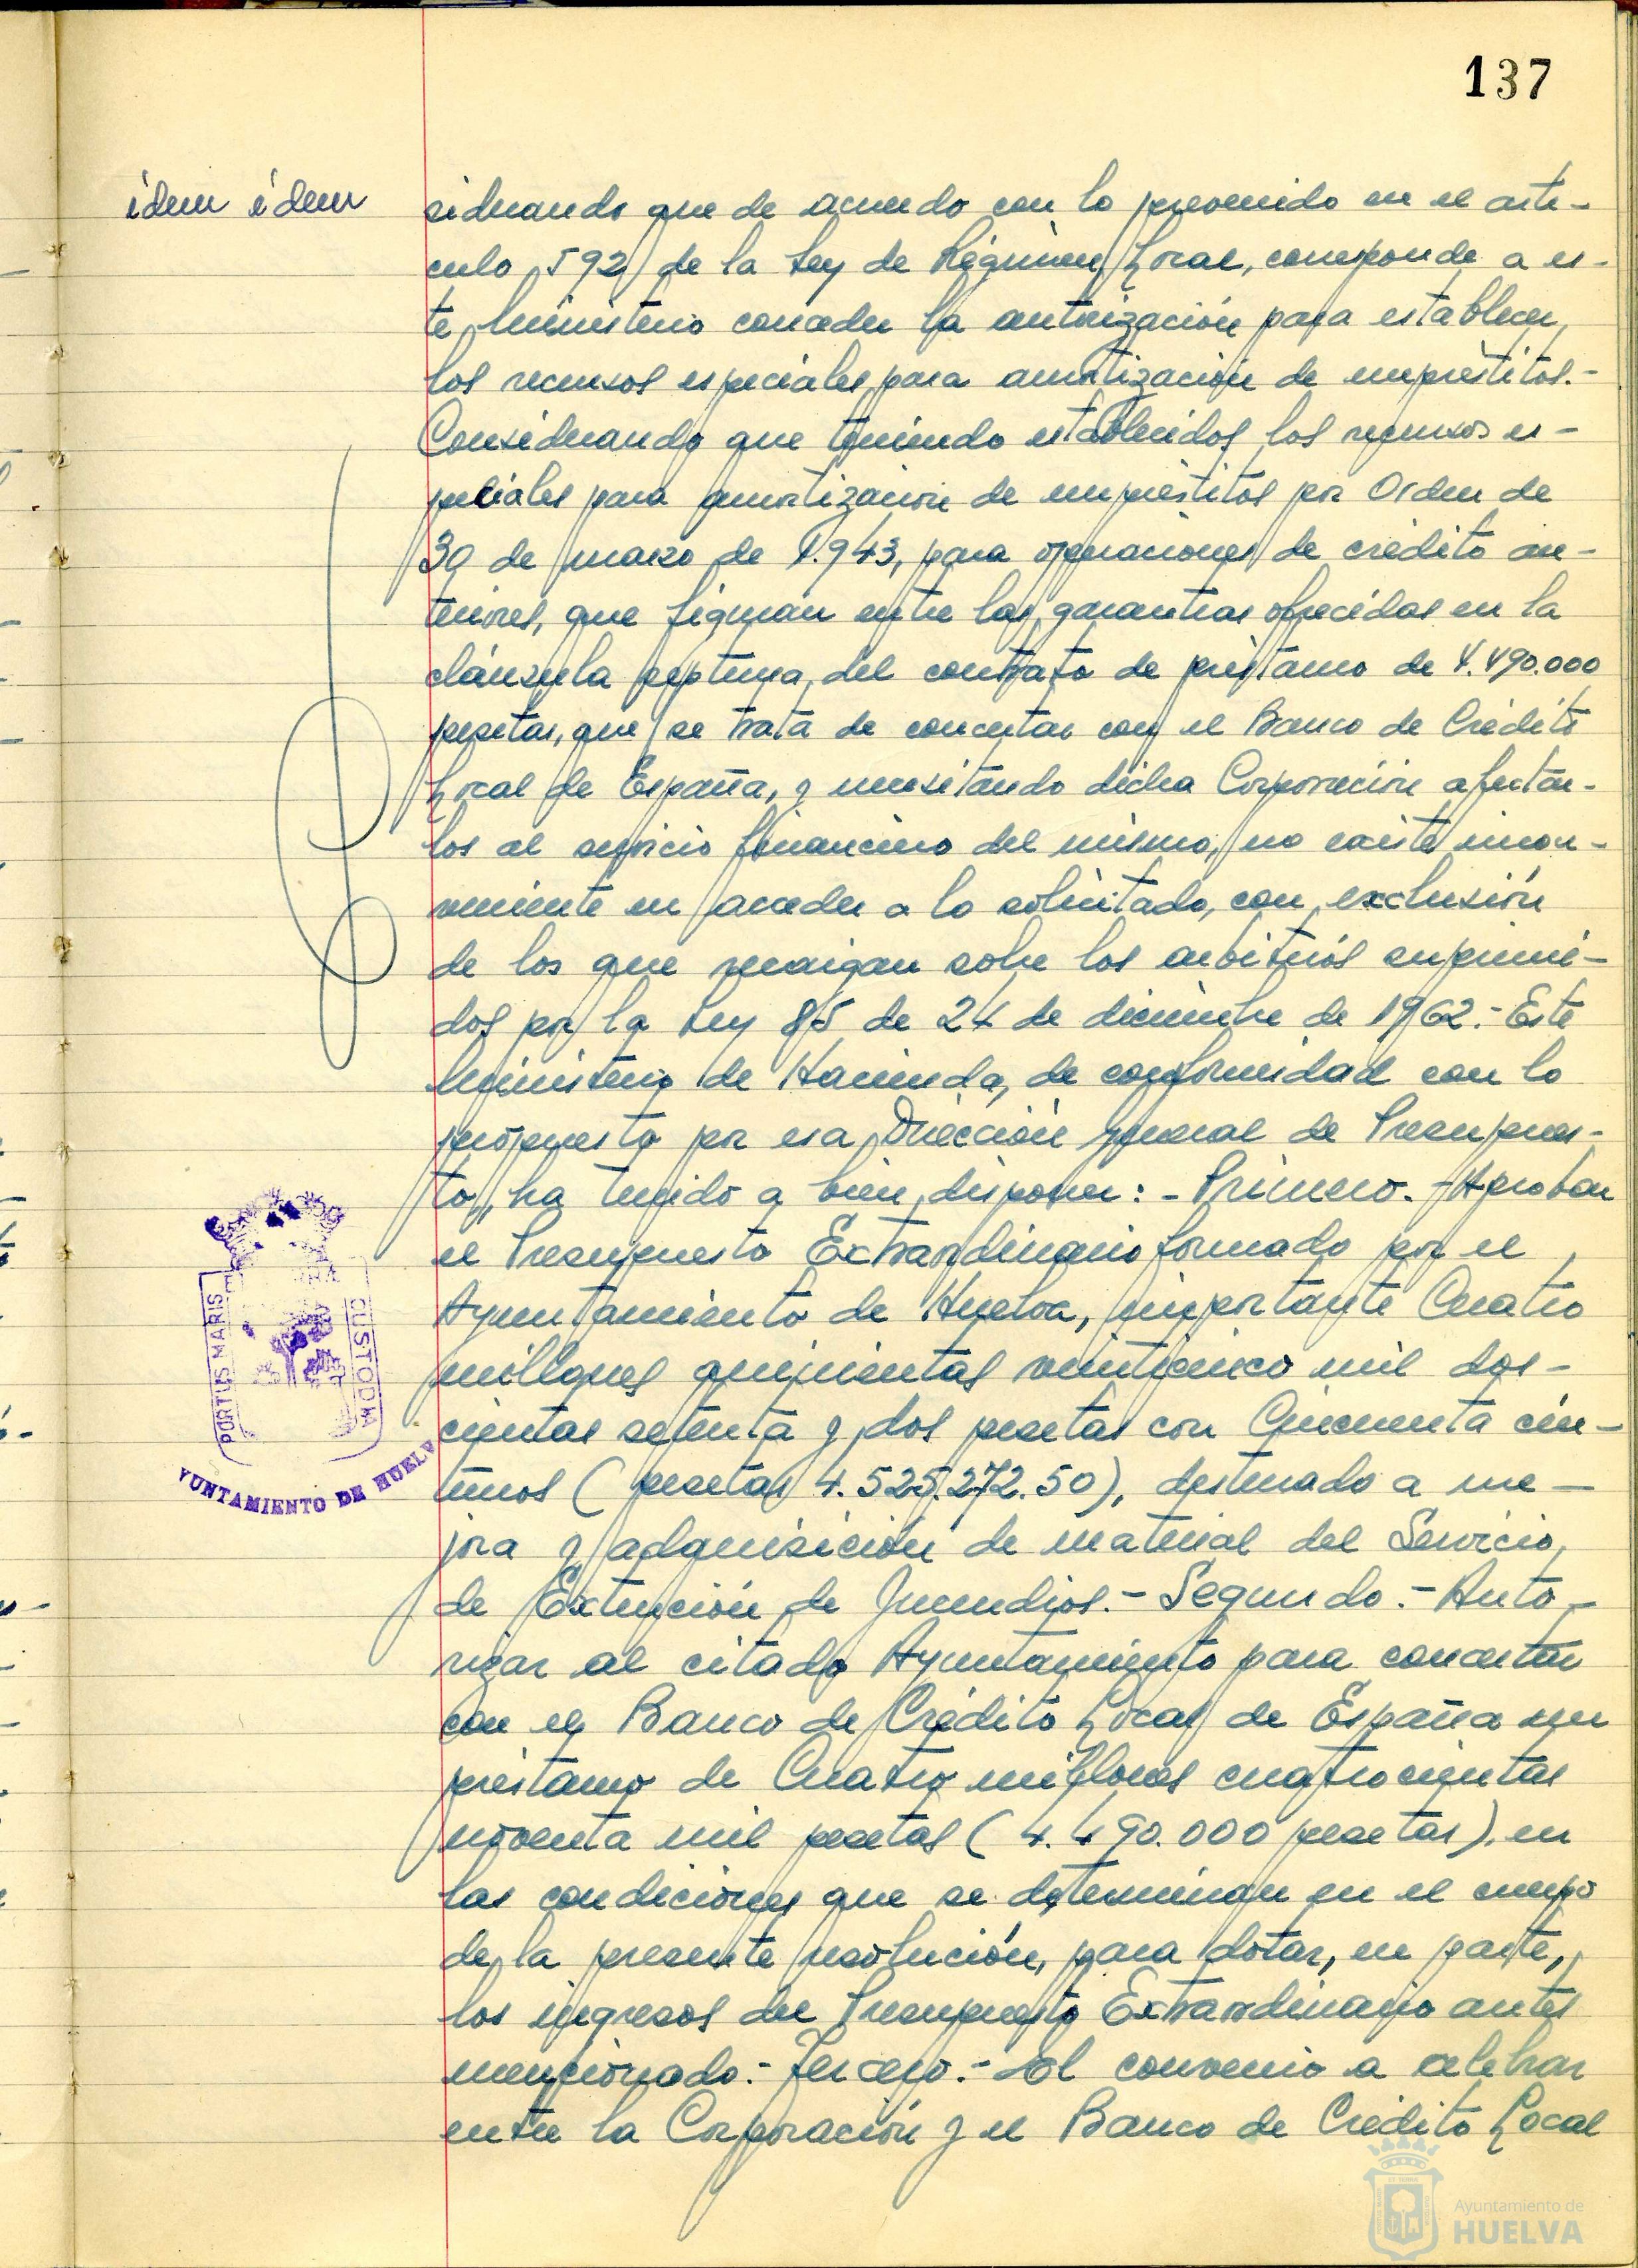 137
idem idem
siderando que de acuerdo con lo prevenido en el artí-
culo 592 de la Ley de Régimen Local, corresponde a es-
te Ministerio conceder la autorización para establecer
los recursos especiales para amortización de empréstitos.-
Considerando que teniendo establecidos los recursos es-
peciales para amortización de empréstitos por Orden de
30 de marzo de 1.943, para operaciones de crédito an-
teriores, que figuran entre las garantías ofrecidas en la
cláusula septima del contrato de préstamo de 4.490.000
pesetas, que se trata de concertar con el Banco de Crédito
Local de España, y necesitando dicha Corporación afectar-
los al servicio financiero del mismo, no existe incon-
veniente en acceder a lo solicitado, con exclusión
de los que recaigan sobre los arbitrios suprimi-
dos por la Ley 85 de 24 de diciembre de 1962.- Este
Ministerio de Hacienda, de conformidad con lo
propuesto por esa Dirección general de Presupues-
to, ha tenido a bien disponer: - Primero. - Aprobar
el Presupuesto Extraordinario formado por el
Ayuntamiento de Huelva, importante Cuatro
millones quinientas veinticinco mil dos-
cientas setenta y dos pesetas con Cincuenta cén-
timos (pesetas 4.525.272.50), destinado a me-
jora y adquisición de material del Servicio
de Extinción de Incendios.- Segundo.- Auto-
rizar al citado Ayuntamiento para concertar
con el Banco de Crédito Local de España un
préstamo de Cuatro millones cuatrocientas
noventa mil pesetas (4.490.000 pesetas). en
las condiciones que se determinan en el cuerpo
de la presente resolución, para dotar, en parte,
los ingresos del Presupuesto Extraordinario antes
mencionado.- Tercero.- El convenio a celebrar
entre la Corporación y el Banco de Crédito Local
PORTUS MARIS
CUSTODIA
YUNTAMIENTO DE HUELV
Ayuntamiento de
HUELVA